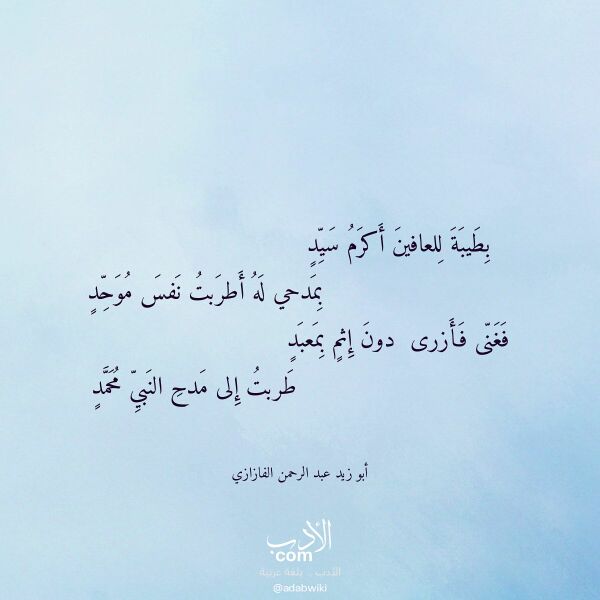 بِطَيبَةَ لِلعافينَ أَكرَمُ سَيِّدٍ
بِمَدحي لَهُ أَطرَبتُ نَفسَ مُوَحِّدٍ
فَغَنّى فَأَزرى دونَ إِثمٍ بِمَعبَدٍ
طَربتُ إِلى مَدحِ النَبيِّ مُحَمَّدٍ
أبو زيد عبد الرحمن الفازازي
الأدب
com
الأدب .. بلغة عربية
@adabwiki